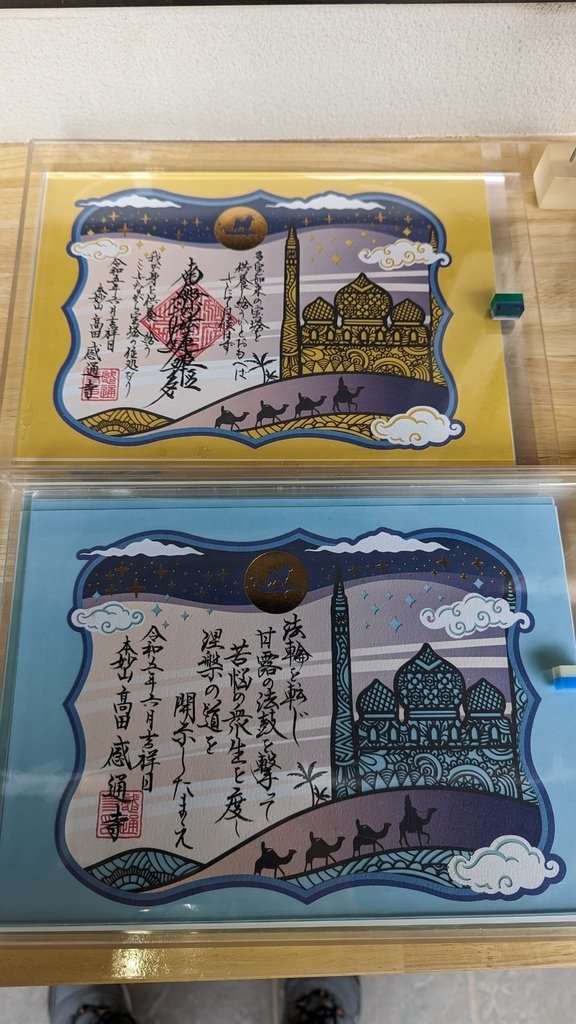 多宝如来の宝塔を
供養し給うかとおもへは
さにては候はす
南無妙法蓮華経
我か身を供養し給う
宝塔の住処なり
令和五年六月吉祥日
本妙山 高田 感通寺
法輪を転じ
甘露の法鼓を撃って
苦悩の衆生を度し
涅槃の道を
開示したまえ
令和五年六月吉祥日
本妙山 高田 感通寺